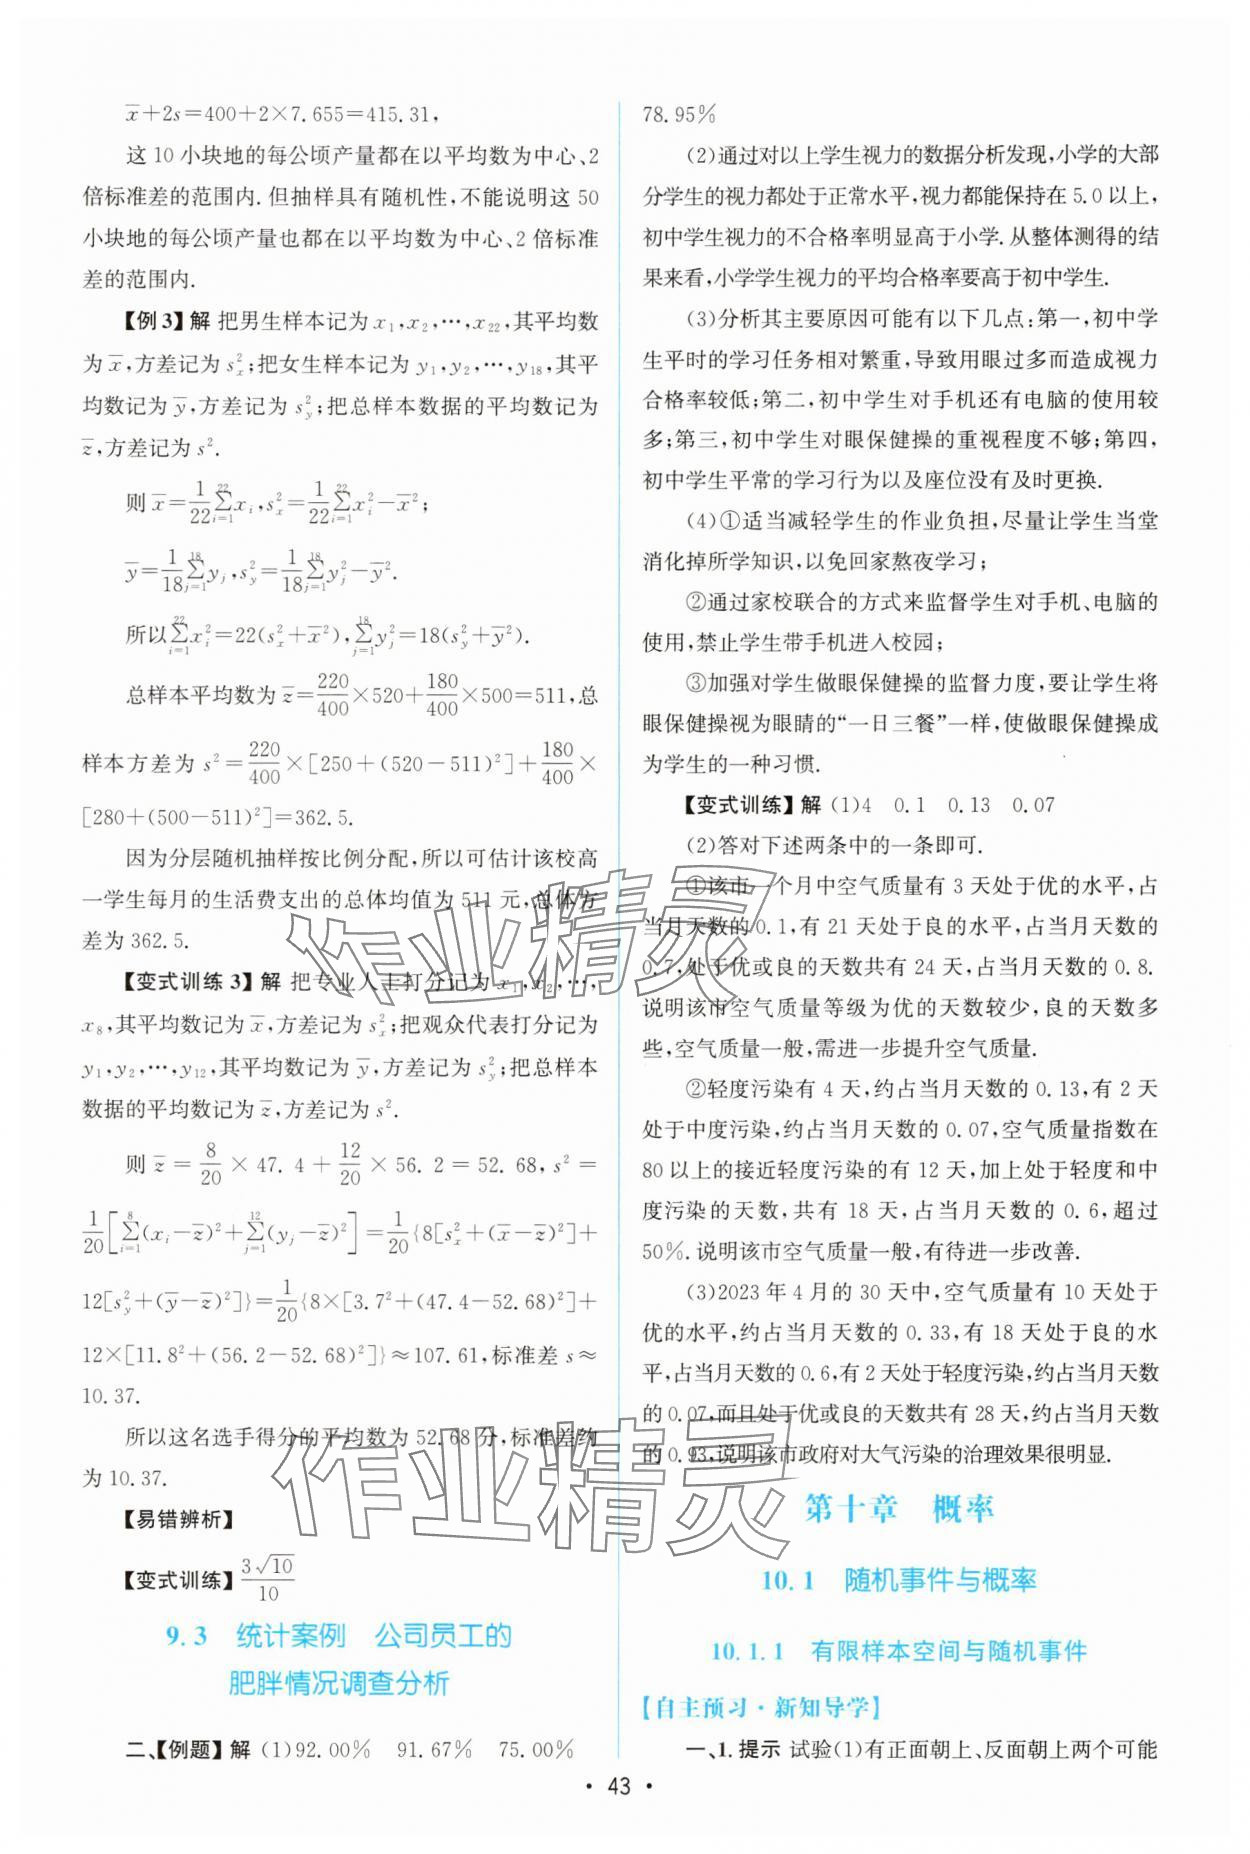 x̅+2s=400+2×7.655=415.31,
这 10 小块地的每公顷产量都在以平均数为中心、2
倍标准差的范围内.但抽样具有随机性,不能说明这 50
小块地的每公顷产量也都在以平均数为中心、2 倍标准
差的范围内.
【例 3】解 把男生样本记为 x₁,x₂,…,x₂₂,其平均数
为 x̅,方差记为 sₓ²;把女生样本记为 y₁,y₂,…,y₁₈,其平
均数记为 y̅,方差记为 s_y²;把总样本数据的平均数记为
z̅,方差记为 s².
则 x̅=1/22 ∑_{i=1}^{22} x_i,sₓ²=1/22 ∑_{i=1}^{22} x_i²−x̅²;
y̅=1/18 ∑_{j=1}^{18} y_j,s_y²=1/18 ∑_{j=1}^{18} y_j²−y̅².
所以 ∑_{i=1}^{22} x_i²=22(sₓ²+x̅²),∑_{j=1}^{18} y_j²=18(s_y²+y̅²).
总样本平均数为 z̅=220/400×520+180/400×500=511,总
样本方差为 s²=220/400×[250+(520−511)²]+180/400×
[280+(500−511)²]=362.5.
因为分层随机抽样按比例分配,所以可估计该校高
一学生每月的生活费支出的总体均值为 511 元,总体方
差为 362.5.
【变式训练 3】解 把专业人士打分记为 x₁,x₂,…,
x₈,其平均数记为 x̅,方差记为 sₓ²;把观众代表打分记为
y₁,y₂,…,y₁₂,其平均数记为 y̅,方差记为 s_y²;把总样本
数据的平均数记为 z̅,方差记为 s².
则 z̅=8/20×47.4+12/20×56.2=52.68,s²=
1/20[∑_{i=1}^{8}(x_i−z̅)²+∑_{j=1}^{12}(y_j−z̅)²]=1/20{8[sₓ²+(x̅−z̅)²]+
12[s_y²+(y̅−z̅)²]}=1/20{8×[3.7²+(47.4−52.68)²]+
12×[11.8²+(56.2−52.68)²]}≈107.61,标准差 s≈
10.37.
所以这名选手得分的平均数为 52.68 分,标准差约
为 10.37.
【易错辨析】
【变式训练】3√10/10
9.3 统计案例 公司员工的
肥胖情况调查分析
二、【例题】解 (1)92.00% 91.67% 75.00%
78.95%
(2)通过对以上学生视力的数据分析发现,小学的大部
分学生的视力都处于正常水平,视力都能保持在 5.0 以上,
初中学生视力的不合格率明显高于小学.从整体测得的结
果来看,小学学生视力的平均合格率要高于初中学生.
(3)分析其主要原因可能有以下几点:第一,初中学
生平时的学习任务相对繁重,导致用眼过多而造成视力
合格率较低;第二,初中学生对手机还有电脑的使用较
多;第三,初中学生对眼保健操的重视程度不够;第四,
初中学生平常的学习行为以及座位没有及时更换.
(4)①适当减轻学生的作业负担,尽量让学生当堂
消化掉所学知识,以免回家熬夜学习;
②通过家校联合的方式来监督学生对手机、电脑的
使用,禁止学生带手机进入校园;
③加强对学生做眼保健操的监督力度,要让学生将
眼保健操视为眼睛的“一日三餐”一样,使做眼保健操成
为学生的一种习惯.
【变式训练】解 (1)4 0.1 0.13 0.07
(2)答对下述两条中的一条即可.
①该市一个月中空气质量有 3 天处于优的水平,占
当月天数的 0.1,有 21 天处于良的水平,占当月天数的
0.7,处于优或良的天数共有 24 天,占当月天数的 0.8.
说明该市空气质量等级为优的天数较少,良的天数多
些,空气质量一般,需进一步提升空气质量.
②轻度污染有 4 天,约占当月天数的 0.13,有 2 天
处于中度污染,约占当月天数的 0.07,空气质量指数在
80 以上的接近轻度污染的有 12 天,加上处于轻度和中
度污染的天数,共有 18 天,占当月天数的 0.6,超过
50%.说明该市空气质量一般,有待进一步改善.
(3)2023 年 4 月的 30 天中,空气质量有 10 天处于
优的水平,约占当月天数的 0.33,有 18 天处于良的水
平,占当月天数的 0.6,有 2 天处于轻度污染,约占当月天
数的 0.07,而且处于优或良的天数共有 28 天,占当月天数
的 0.93,说明该市政府对大气污染的治理效果很明显.
第十章 概率
10.1 随机事件与概率
10.1.1 有限样本空间与随机事件
【自主预习·新知导学】
一、1.提示 试验(1)有正面朝上、反面朝上两个可能
· 43 ·
作业精灵
作业精灵